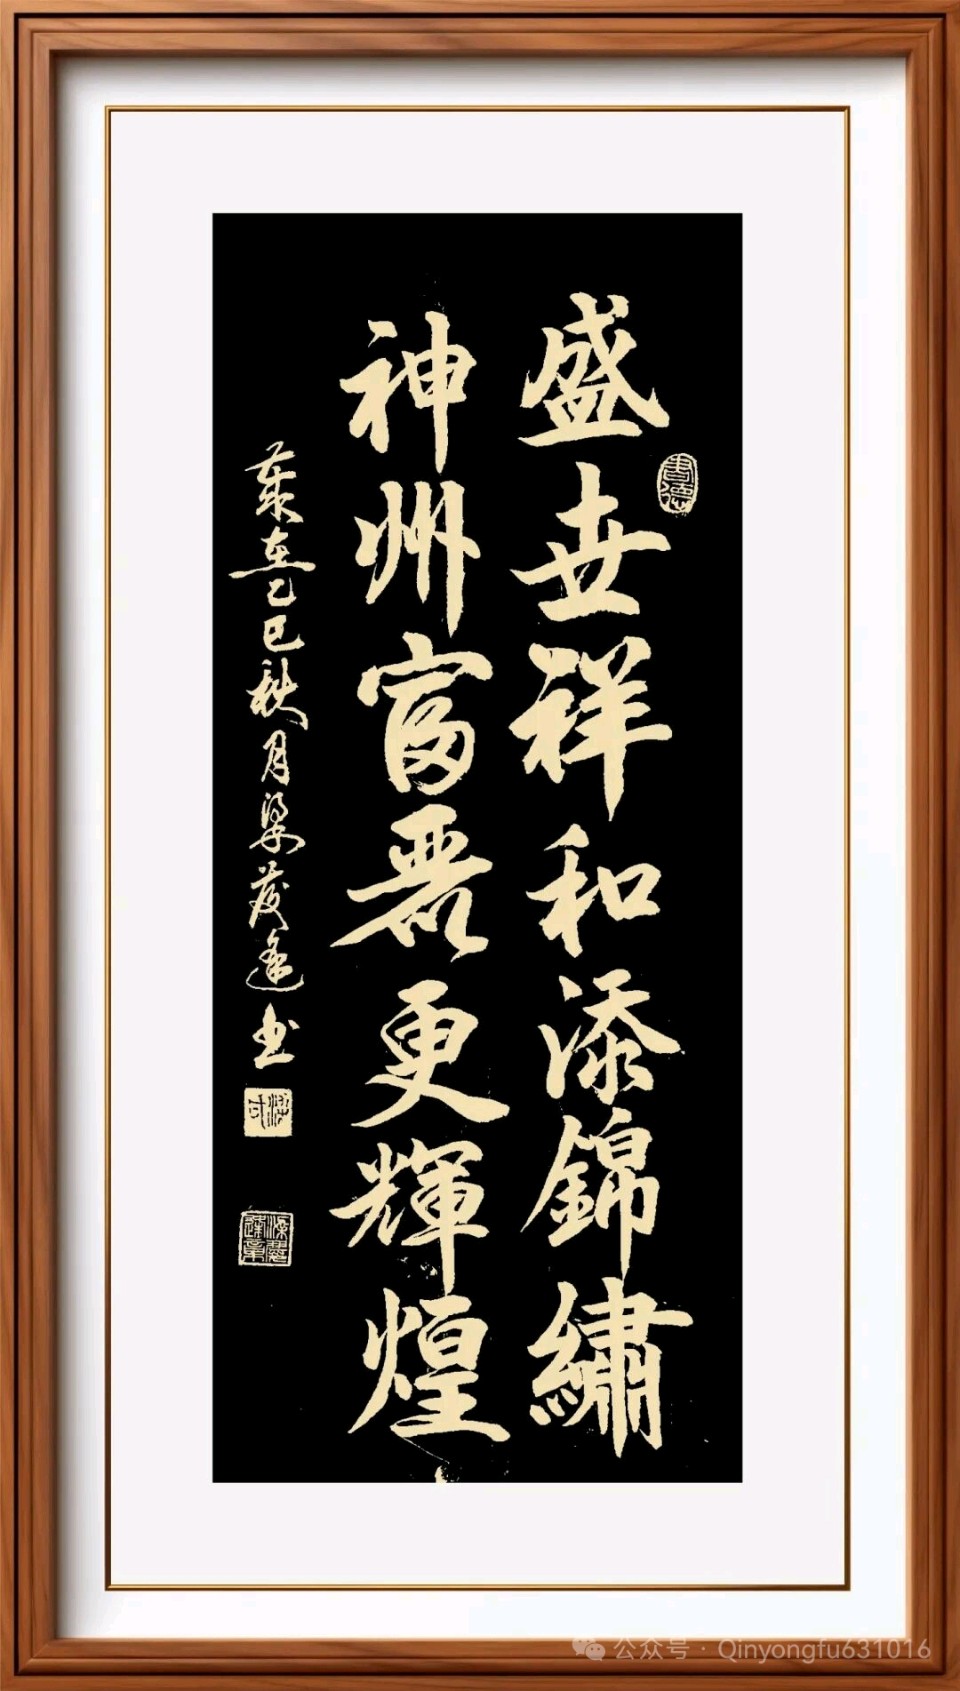 盛世祥和添錦繡
神州富麗更輝煌
歲在乙巳秋月梁發達书
書德
公众号 · Qinyongfu631016